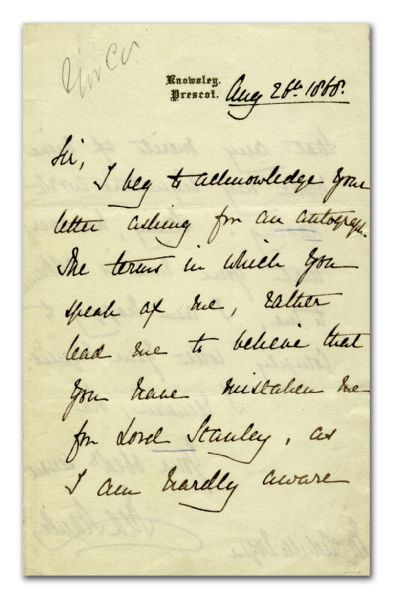 Knowsley.
Prescot.
Aug 26th 1868.
Sir,
I beg to acknowledge your
letter asking for an autograph.
The terms in which you
speak of me, rather
lead me to believe that
you have mistaken me
for Lord Stanley, as
I am hardly aware